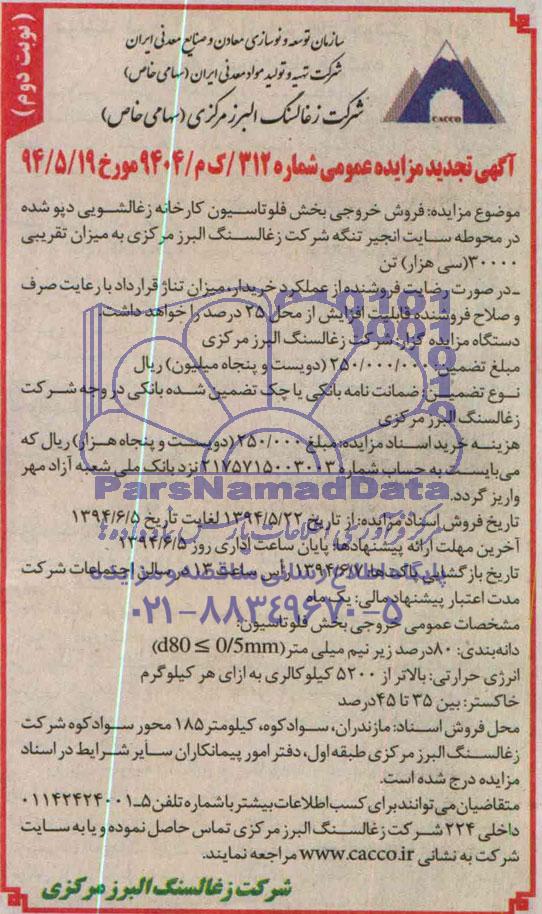 (نوبت دوم)
سازمان توسعه و نوسازی معادن و صنایع معدنی ایران
شرکت تهیه و تولید مواد معدنی ایران (سهامی خاص)
شرکت زغالسنگ البرز مرکزی (سهامی خاص)
CACCO
آگهی تجدید مزایده عمومی شماره ۳۱۲/ک م/۹۴۰۴ مورخ ۹۴/۵/۱۹
موضوع مزایده: فروش خروجی بخش فلوتاسیون کارخانه زغالشویی دپو شده
در محوطه سایت انجیر تنگه شرکت زغالسنگ البرز مرکزی به میزان تقریبی
۳۰۰۰۰(سی هزار) تن
ـ در صورت رضایت فروشنده از عملکرد خریدار، میزان تناژ قرارداد با رعایت صرف
و صلاح فروشنده قابلیت افزایش از محل ۲۵ درصد را خواهد داشت.
دستگاه مزایده گزار: شرکت زغالسنگ البرز مرکزی
مبلغ تضمین: ۲۵۰/۰۰۰/۰۰۰ (دویست و پنجاه میلیون) ریال
نوع تضمین: ضمانت نامه بانکی یا چک تضمین شده بانکی در وجه شرکت
زغالسنگ البرز مرکزی
هزینه خرید اسناد مزایده: مبلغ ۲۵۰/۰۰۰ (دویست و پنجاه هزار) ریال که
می‌بایست به حساب شماره ۲۱۷۵۷۱۵۰۰۳۰۰۳ نزد بانک ملی شعبه آزاد مهر
واریز گردد.
ParsNamadData
تاریخ فروش اسناد مزایده: از تاریخ ۱۳۹۴/۵/۲۲ لغایت تاریخ ۱۳۹۴/۶/۵
آخرین مهلت ارائه پیشنهادها: پایان ساعت اداری روز ۱۳۹۴/۶/۵
تاریخ بازگشایی پاکت‌ها: ۱۳۹۴/۶/۷ رأس ساعت ۱۳ در سالن اجتماعات شرکت
مدت اعتبار پیشنهاد مالی: یک ماه
۰۲۱-۸۸۳۴۹۶۷۰-۵
مشخصات عمومی خروجی بخش فلوتاسیون:
دانه‌بندی: ۸۰درصد زیر نیم میلی متر (d80 ≤ 0/5mm)
انرژی حرارتی: بالاتر از ۵۲۰۰ کیلوکالری به ازای هر کیلوگرم
خاکستر: بین ۳۵ تا ۴۵درصد
محل فروش اسناد: مازندران، سوادکوه، کیلومتر ۱۸۵ محور سوادکوه شرکت
زغالسنگ البرز مرکزی طبقه اول، دفتر امور پیمانکاران سایر شرایط در اسناد
مزایده درج شده است.
متقاضیان می‌توانند برای کسب اطلاعات بیشتر با شماره تلفن ۵ـ۰۱۱۴۲۴۲۴۰۰۱
داخلی ۲۲۴ شرکت زغالسنگ البرز مرکزی تماس حاصل نموده و یا به سایت
شرکت به نشانی www.cacco.ir مراجعه نمایند.
شرکت زغالسنگ البرز مرکزی